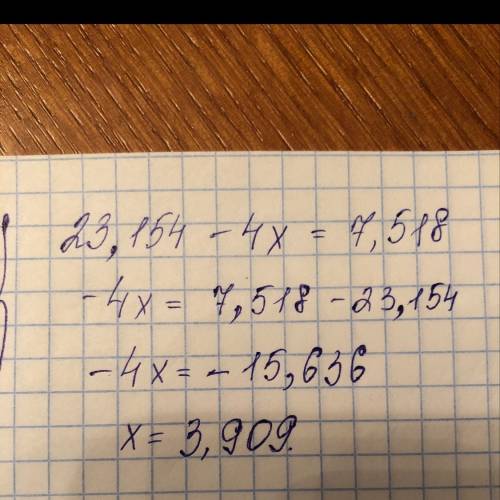 23,154 - 4x = 7,518
-4x = 7,518 - 23,154
-4x = - 15,636
x = 3,909.